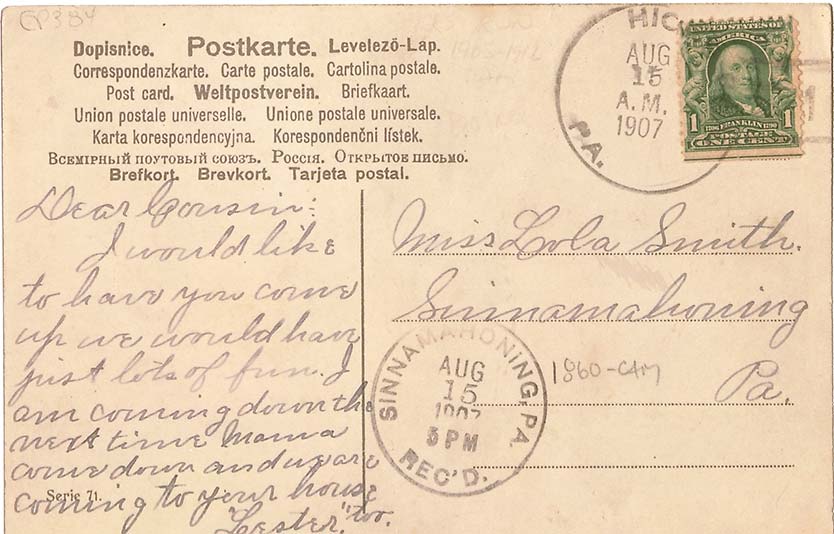 CP3B4
Dopisnice. Postkarte. Levelezö-Lap.
Correspondenzkarte. Carte postale. Cartolina postale.
Post card. Weltpostverein. Briefkaart.
Union postale universelle. Unione postale universale.
Karta korespondencyjna. Korespondenčni lístek.
Всемірный поутовый союзъ. Россія. Открытое письмо.
Brefkort. Brevkort. Tarjeta postal.
HIC
AUG
15
A. M.
1907
PA.
UNITED STATES OF
AMERICA
1 1706 FRANKLIN 1790 1
POSTAGE
ONE CENT
1
Dear Cousin:
I would like
to have you come
up we would have
just lots of fun. I
am coming down the
next time Mama
come down and we are
coming to your house
"Lester," too.
Serie 71.
Miss Lola Smith.
Sinnamahoning
Pa.
SINNAMAHONING, PA.
AUG
15
1907
5 PM
REC'D.
1860-CAM